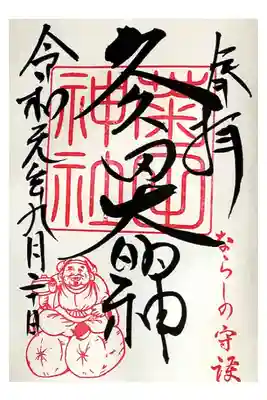 奉拝
ならしの守護
菊田
神社
久々田大明神
令和元年九月二十日